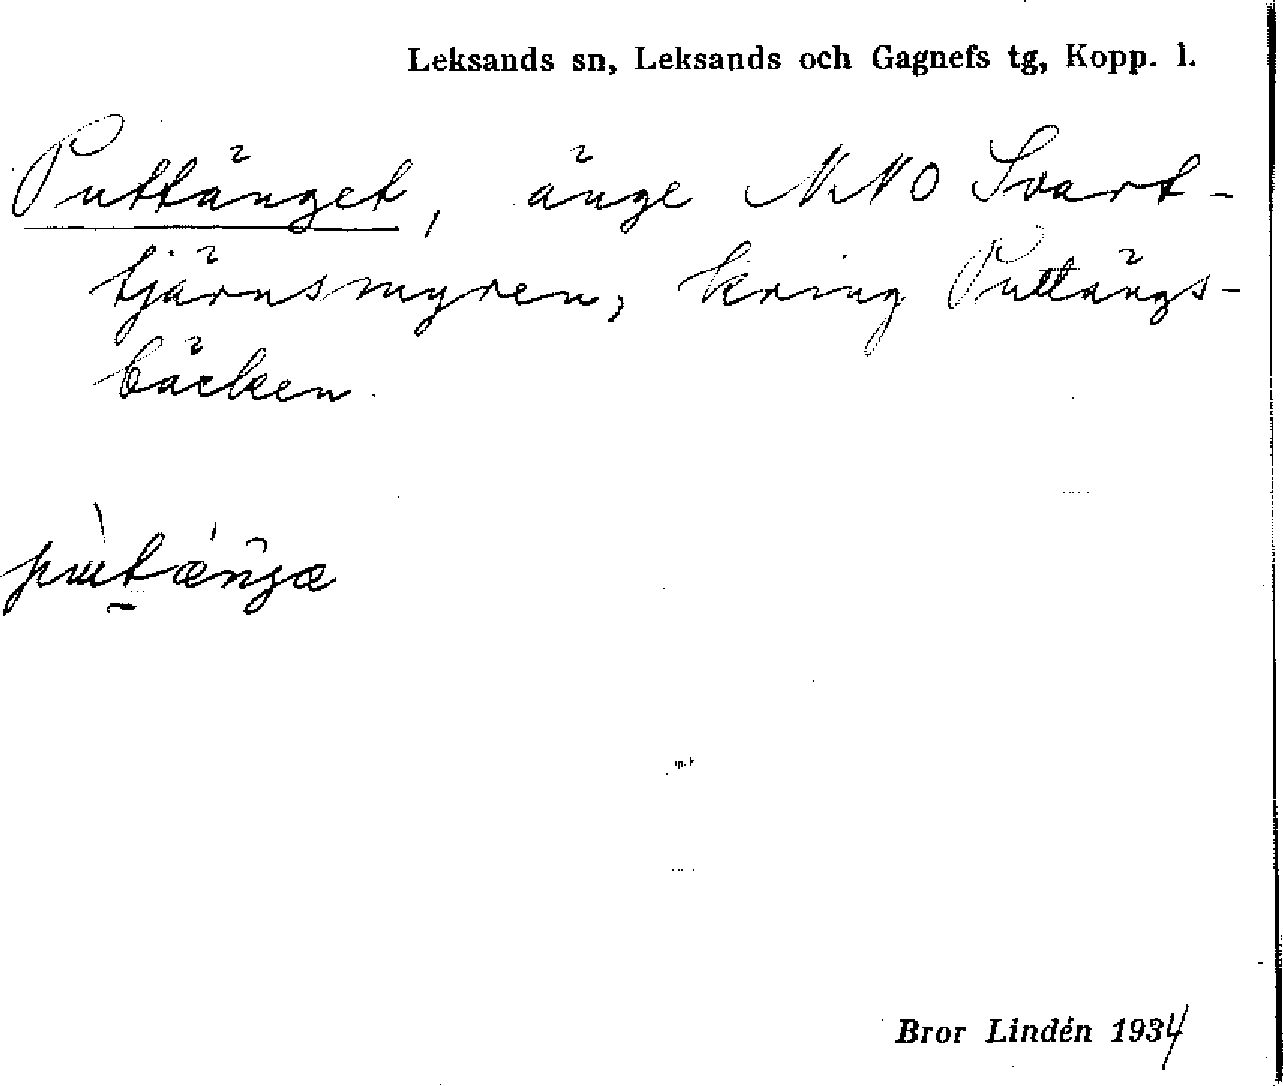 Leksands sn, Leksands och Gagnefs tg, Kopp. l.
Puttänget, änge NNO Svart-
tjärnsmyren, kring Puttängs-
bäcken.
Bror Lindén 1934